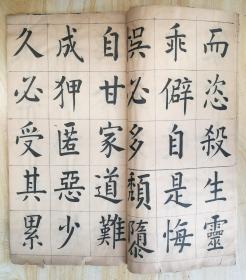 而恣殺生靈
乖僻自是悔
吳必多頹隳
自甘家道難
成狎匿惡少
久必受其累